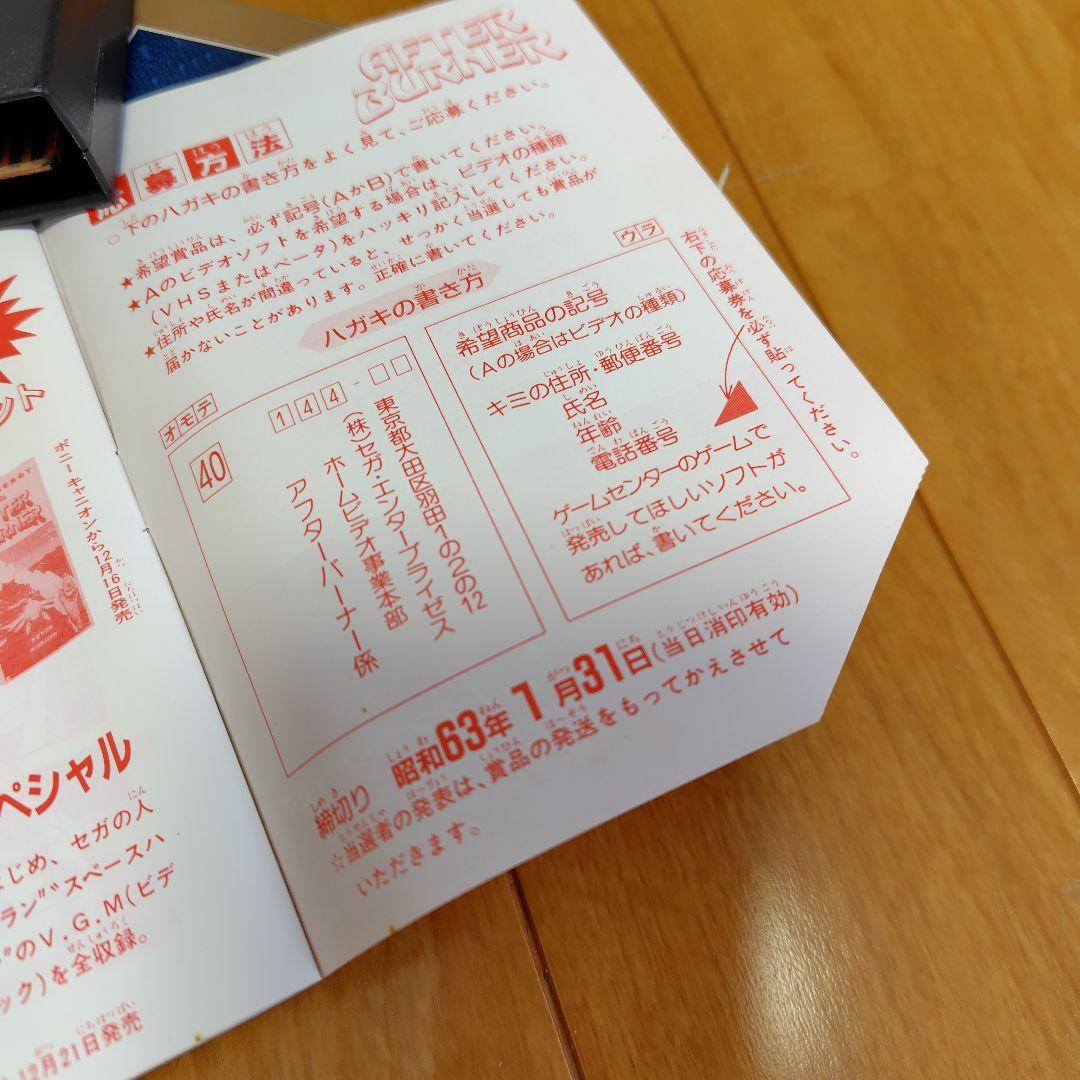 AFTER
BURNER
応募方法
○下のハガキの書き方をよく見て、ご応募ください。
★希望賞品は、必ず記号(AかB)で書いてください。
★Aのビデオソフトを希望する場合は、ビデオの種類
(VHSまたはベータ)をハッキリ記入してください。
★住所や氏名が間違っていると、せっかく当選しても賞品が
届かないことがあります。正確に書いてください。
ハガキの書き方
オモテ
40
144-
東京都大田区羽田1の2の12
(株)セガ・エンタープライゼス
ホームビデオ事業本部
アフターバーナー係
ウラ
希望商品の記号
(Aの場合はビデオの種類)
キミの住所・郵便番号
氏名
年齢
電話番号
ゲームセンターのゲームで
発売してほしいソフトが
あれば、書いてください。
右下の応募券を必ず貼ってください。
締切り 昭和63年1月31日(当日消印有効)
☆当選者の発表は、賞品の発送をもってかえさせて
いただきます。
ット
ポニーキャニオンから12月16日発売
ペシャル
じめ、セガの人
ラン”“スペースハ
”のV.G.M(ビデ
ック)を全収録。
12月21日発売